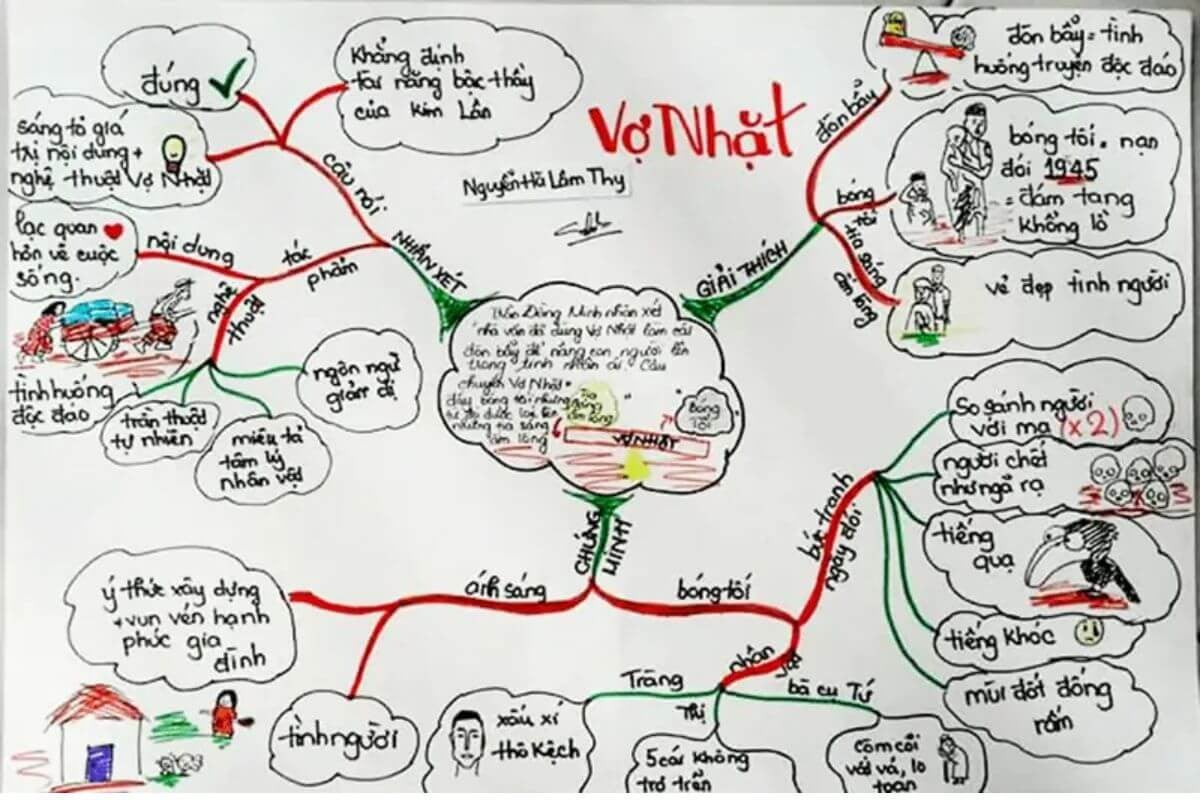 Vợ Nhặt
Nguyễn Hà Lâm Thy
Trần Đồng Minh nhận xét
"nhà văn đã dùng Vợ Nhặt làm cái
đòn bẩy để nâng con người lên
trong tình nhân ái. Câu
chuyện Vợ Nhặt
đầy bóng tối nhưng
từ đó được loé lên
những tia sáng
ấm lòng"
Tia
sáng
ấm lòng
Bóng
tối
VỢ NHẶT
GIẢI THÍCH
đòn bẩy
đòn bẩy = tình
huống truyện độc đáo
bóng
tối
bóng tối = nạn
đói 1945
= đám tang
khổng lồ
tia sáng
ấm lòng
vẻ đẹp tình người
CHỨNG
MINH
bóng tối
bức tranh
ngày đói
So sánh người
với ma (x2)
người chết
như ngả rạ
tiếng
quạ
tiếng khóc
mùi đốt đống
rấm
nhân
vật
Tràng
xấu xí
thô kệch
Thị
5 cái không
trơ trẽn
bà cụ Tứ
Còm cõi
vất vả, lo
toan
ánh sáng
ý thức xây dựng
+ vun vén hạnh
phúc gia
đình
tình người
NHẬN XÉT
câu nói
đúng
Khẳng định
tài năng bậc thầy
của Kim Lân
sáng tỏ giá
trị nội dung +
nghệ thuật Vợ Nhặt
tác
phẩm
nội dung
lạc quan
hơn về cuộc
sống.
nghệ
thuật
tình huống
độc đáo
trần thuật
tự nhiên
miêu tả
tâm lý
nhân vật
ngôn ngữ
giản dị